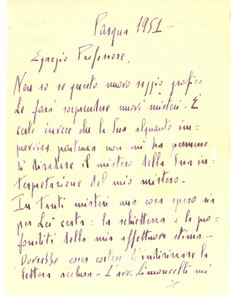 Pasqua 1951 -
Egregio Professore,
Non so se questo nuovo saggio grafico
Le farà sorprendere nuovi misteri. È
certo invece che la Sua alquanto im-
provvisa partenza non mi ha permesso
di diradare il mistero della Sua in-
terpretazione del mio mistero.
In tanti misteri una cosa spero sia
per Lei certa: la schiettezza e la pro-
fondità della mia affettuosa stima -
Dovrebbe esser cortese d'indirizzare la
lettera acclusa. L'avv. Limoncelli mi